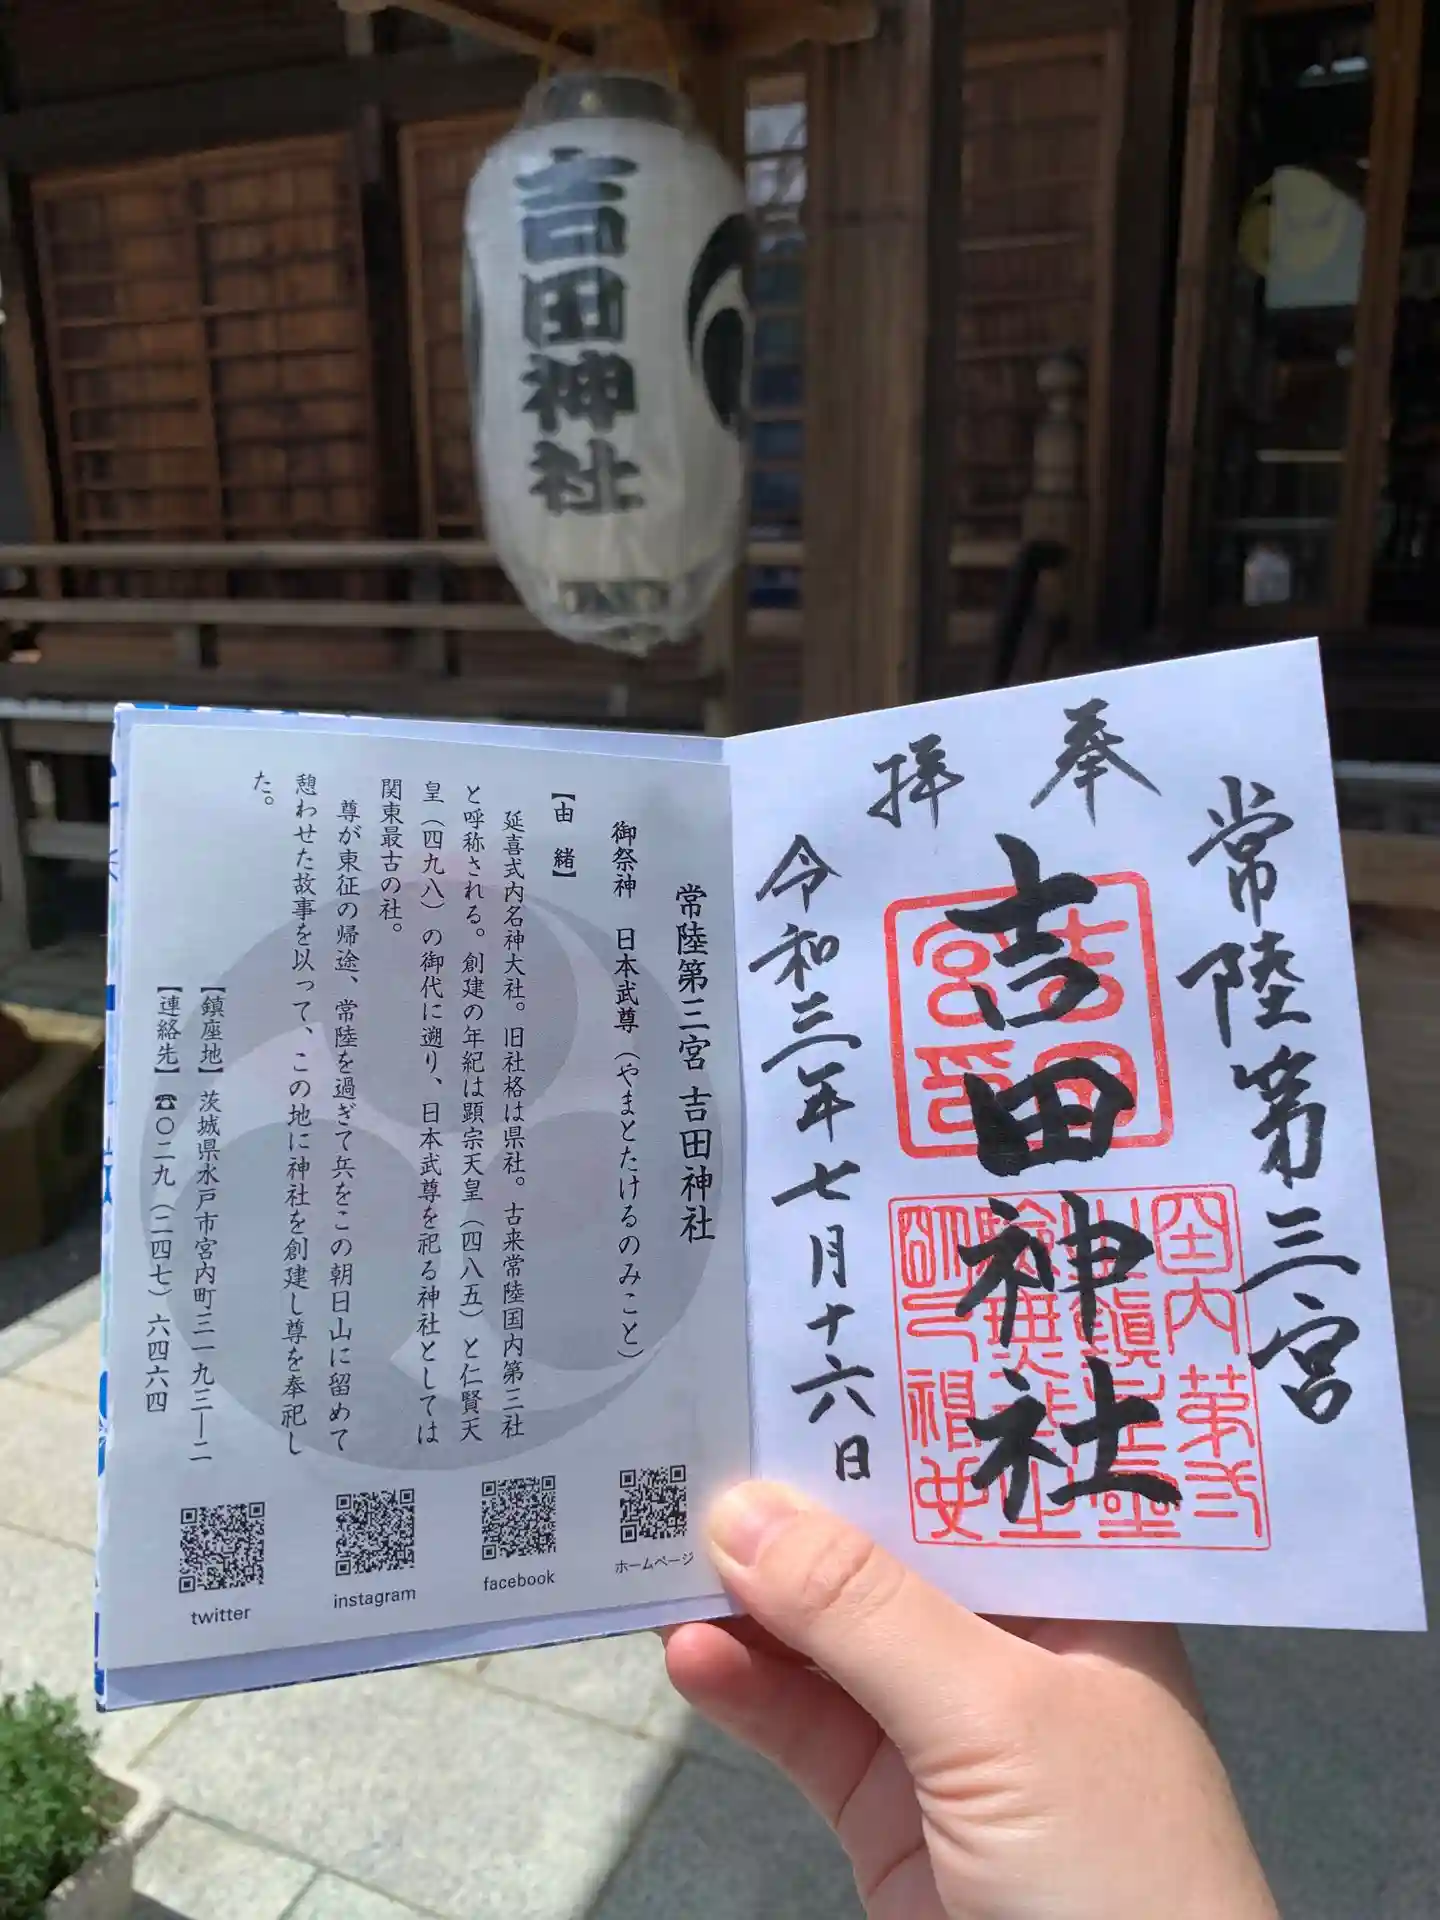 吉田神社
常陸第三宮
奉
拝
吉田神社
令和三年七月十六日
吉田
宮印
常陸第三宮 吉田神社
御祭神 日本武尊(やまとたけるのみこと)
【由 緒】
延喜式内名神大社。旧社格は県社。古来常陸国内第三社
と呼称される。創建の年紀は顕宗天皇(四八五)と仁賢天
皇(四九八)の御代に遡り、日本武尊を祀る神社としては
関東最古の社。
尊が東征の帰途、常陸を過ぎて兵をこの朝日山に留めて
憩わせた故事を以って、この地に神社を創建し尊を奉祀し
た。
【鎮座地】 茨城県水戸市宮内町三一九三―二
【連絡先】☎〇二九(二四七)六四六四
ホームページ
facebook
instagram
twitter